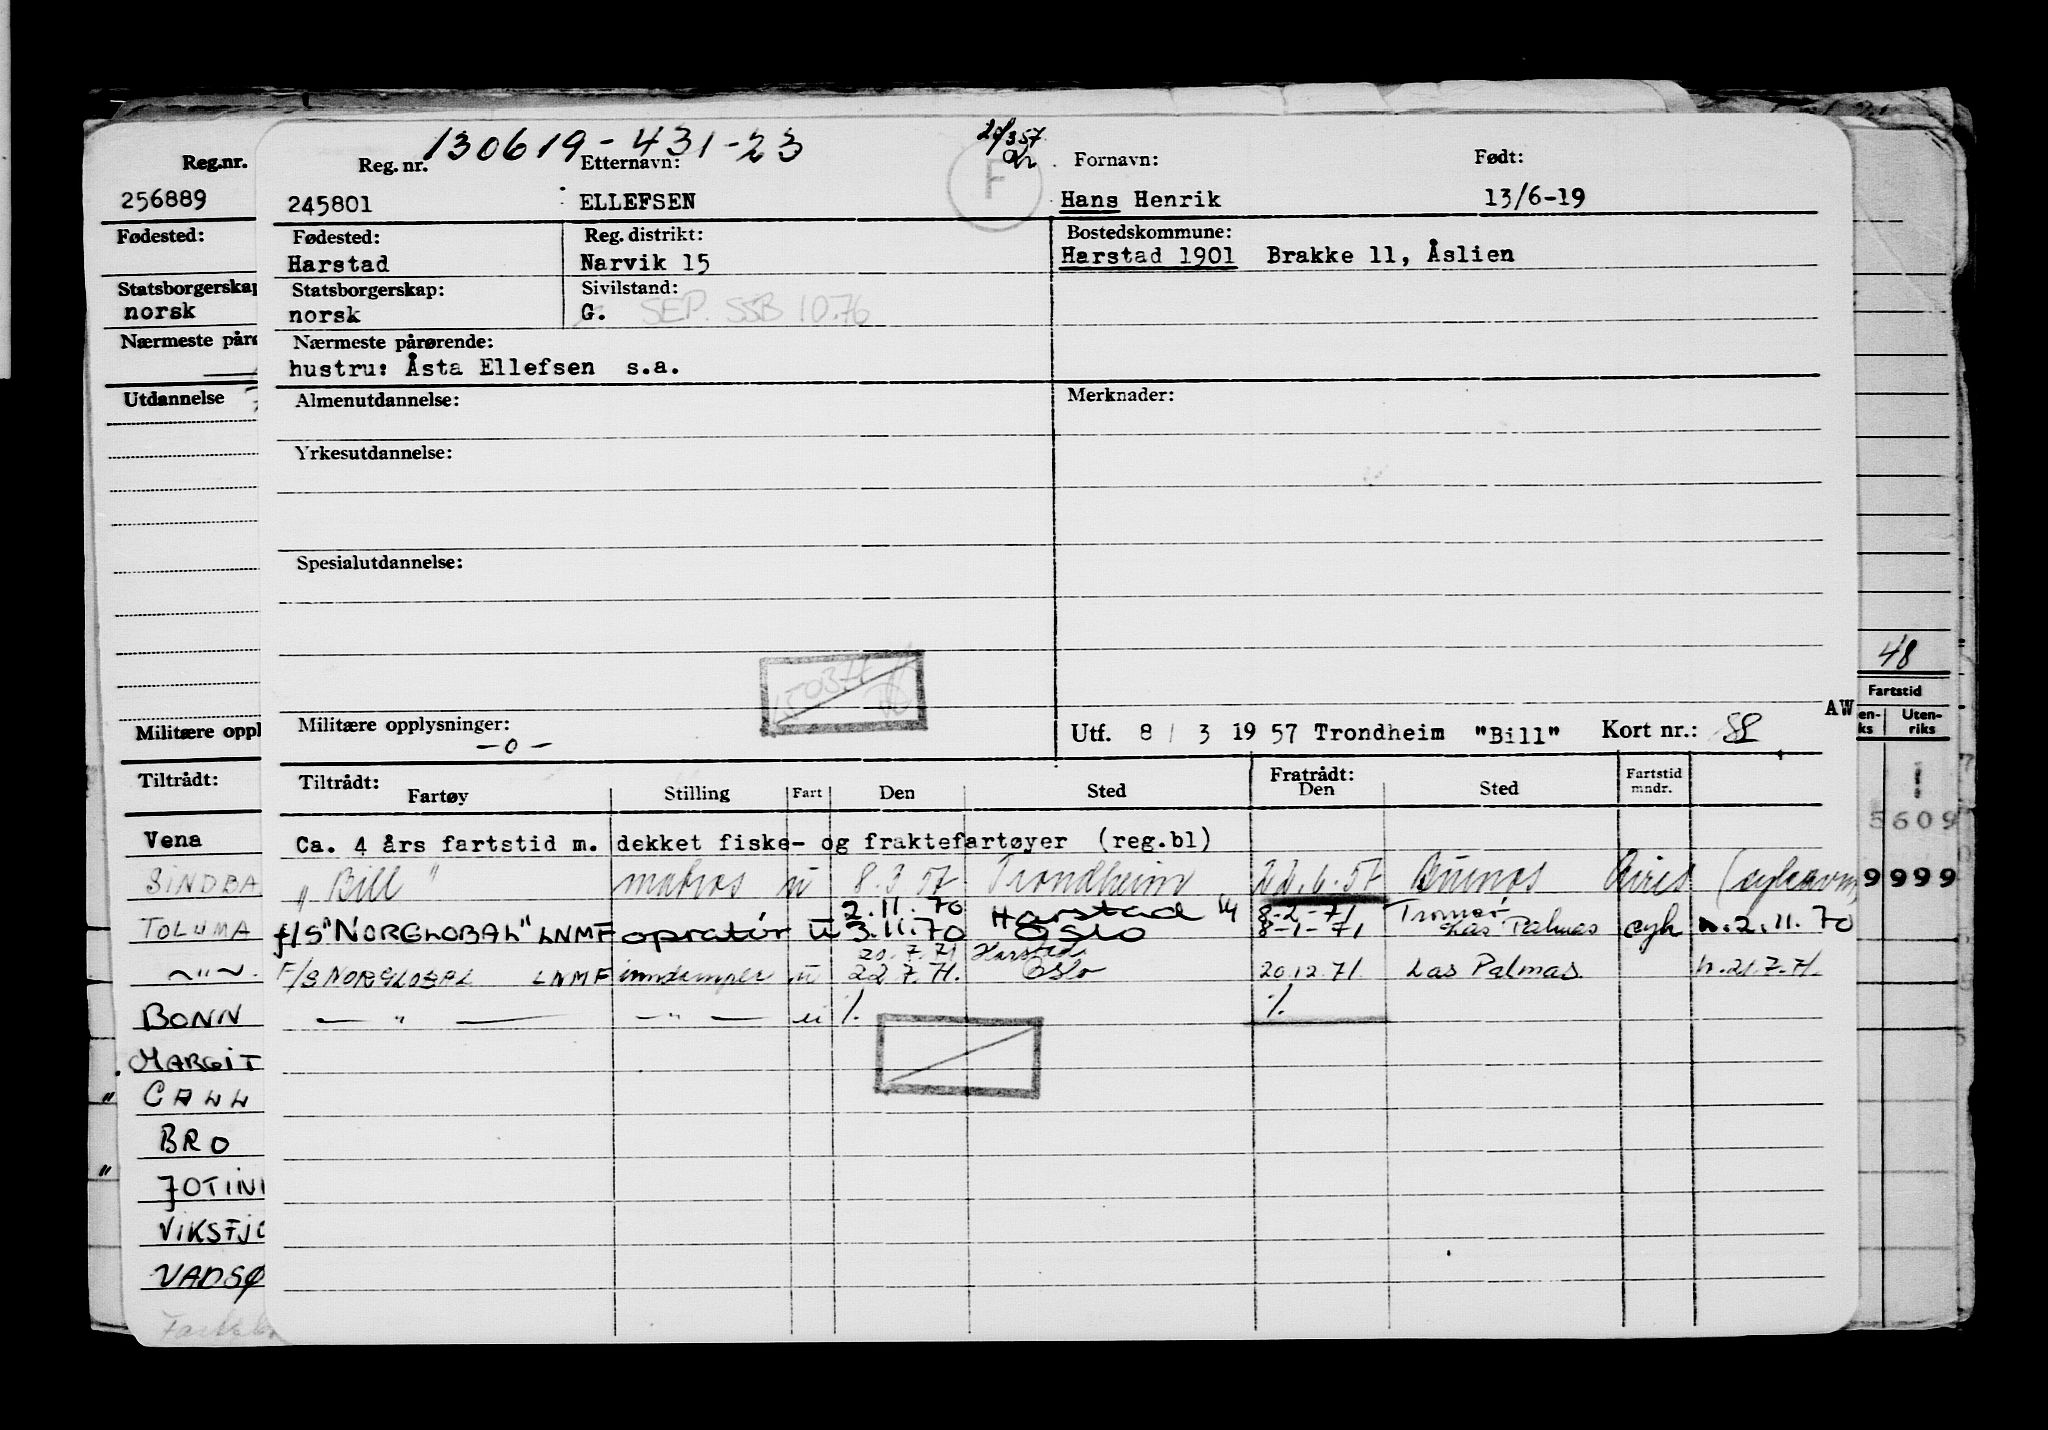 130619-431-23
Reg.nr. Reg. nr. Etternavn: F Fornavn: Født:
256889 245801 ELLEFSEN Hans Henrik 13/6-19
Fødested: Fødested: Reg. distrikt: Bostedskommune:
Harstad Narvik 15 Harstad 1901 Brakke 11, Åslien
Statsborgerskap Statsborgerskap: Sivilstand:
norsk norsk G. SEP. SSB 10.76
Nærmeste påro Nærmeste pårørende:
hustru: Åsta Ellefsen s.a.
Utdannelse Almenutdannelse: Merknader:
Yrkesutdannelse:
Spesialutdannelse:
48
Fartstid
AW
Uten-
riks
Militære oppl Militære opplysninger: Utf. 8 / 3 19 57 Trondheim "Bill" Kort nr.:
- o -
Tiltrådt: Tiltrådt: Fratrådt: Fartstid mndr.
Fartøy Stilling Fart Den Sted Den Sted
Vena Ca. 4 års fartstid m. dekket fiske- og fraktefartøyer (reg.bl) 5609
SINDBA "Bill" matros u 8.3.57 Trondheim 22.6.57 Buenos Aires 9999
2.11.70 Harstad 8-2-71 Tromsø
TOLUMA F/S "NORGLOBAL" LNMF opratør U 3.11.70 Oslo 8-1-71 Las Palmas h.2.11.70
20.7.71 Harstad
— " — F/S NORGLOBAL LNMF u 22.7.71. Oslo 20.12.71 Las Palmas h.21.7.71
BONN — " — — " — u ·/. ·/.
MARGIT
" CALL
BRO
" JOTINI
VIKSFJO
VADSØ